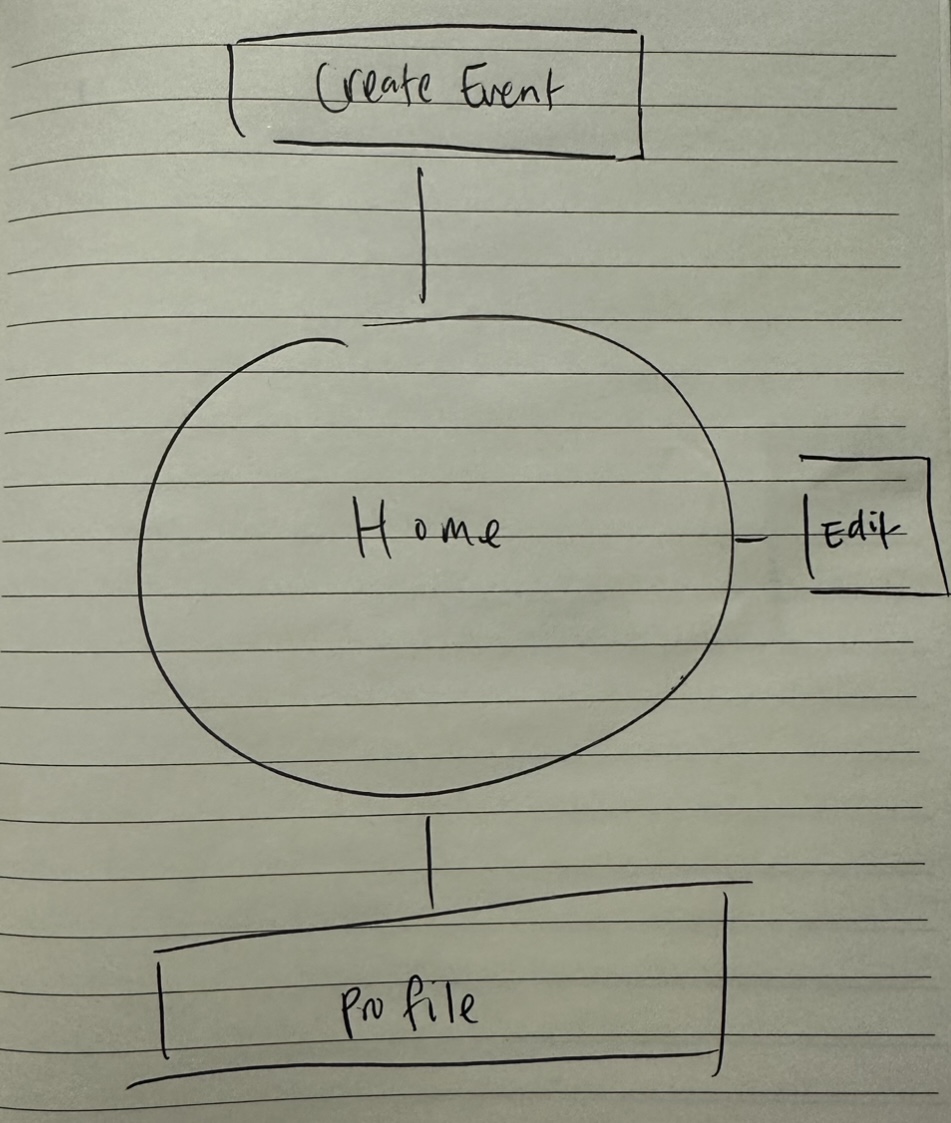 Create Event
Home
Edit
Profile